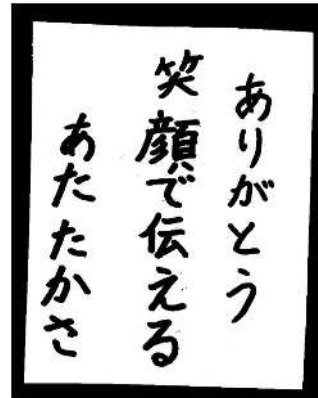 ありがとう
笑顔で伝える
あたたかさ